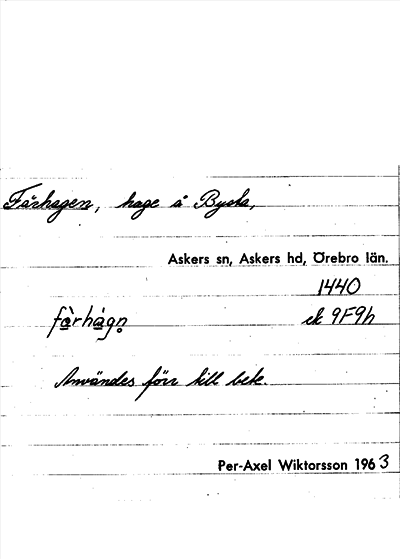 Fårhagen, hage å Bysta,
Askers sn, Askers hd, Örebro län.
1440
fårhàgn̥ ek 9F9h
Användes förr till bete.
Per-Axel Wiktorsson 1963